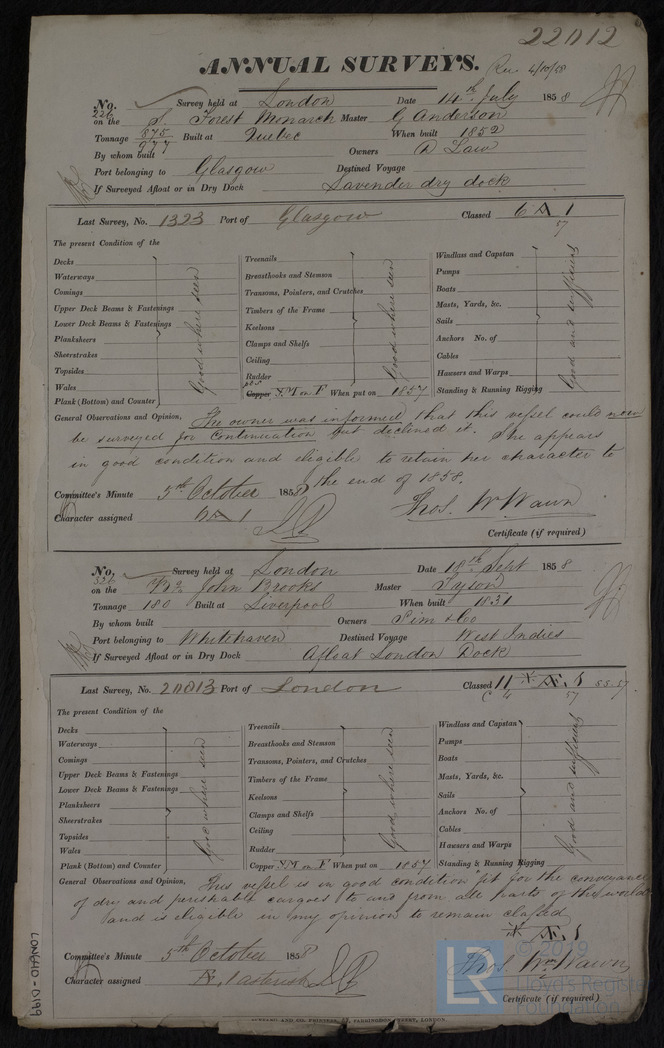 22012
ANNUAL SURVEYS. Rec. 4/10/58
No. Survey held at London Date 14th July 1858
226 on the S. Forest Monarch Master G Anderson
Tonnage 875 Built at Quebec When built 1852
977
By whom built Owners D Law
Port belonging to Glasgow Destined Voyage
If Surveyed Afloat or in Dry Dock Lavender dry dock
Last Survey, No. 1323 Port of Glasgow Classed 6 A 1
57
The present Condition of the
Decks
Waterways
Comings
Upper Deck Beams & Fastenings
Lower Deck Beams & Fastenings
Planksheers
Sheerstrakes
Topsides
Wales
Plank (Bottom) and Counter
Good where seen
Treenails
Breasthooks and Stemson
Transoms, Pointers, and Crutches
Timbers of the Frame
Keelsons
Clamps and Shelfs
Ceiling
Rudder
Copper Y.M on F When put on 1857
Good where seen
Windlass and Capstan
Pumps
Boats
Masts, Yards, &c.
Sails
Anchors No. of
Cables
Hawsers and Warps
Standing & Running Rigging
Good and sufficient
General Observations and Opinion, The owner was informed that this vessel could now
be surveyed for Continuation but declined it. She appears
in good condition and eligible to retain her character to
the end of 1858.
Committee's Minute 5th October 1858
Character assigned 6 A 1
Thos. Wm Wawn
Certificate (if required)
No. Survey held at London Date 18th Sept 1858
326 on the John Brooks Master Tyson
Tonnage 180 Built at Liverpool When built 1831
By whom built Owners Sim & Co
Port belonging to Whitehaven Destined Voyage West Indies
If Surveyed Afloat or in Dry Dock Afloat London Dock
Last Survey, No. 20013 Port of London Classed 11 * Æ. 1 55.57
C 4 57
The present Condition of the
Decks
Waterways
Comings
Upper Deck Beams & Fastenings
Lower Deck Beams & Fastenings
Planksheers
Sheerstrakes
Topsides
Wales
Plank (Bottom) and Counter
Good where seen
Treenails
Breasthooks and Stemson
Transoms, Pointers, and Crutches
Timbers of the Frame
Keelsons
Clamps and Shelfs
Ceiling
Rudder
Copper Y.M on F When put on 1857
Good where seen
Windlass and Capstan
Pumps
Boats
Masts, Yards, &c.
Sails
Anchors No. of
Cables
Hawsers and Warps
Standing & Running Rigging
Good and sufficient
General Observations and Opinion, This vessel is in good condition fit for the conveyance
of dry and perishable cargoes to and from all parts of the world
and is eligible in my opinion to remain classed
* Æ. 1
Committee's Minute 5th October 1858
Character assigned Æ. 1 asterisk
Thos. Wm Wawn
Certificate (if required)
LON640-0199
LR
© 2019
Lloyd's Register
Foundation